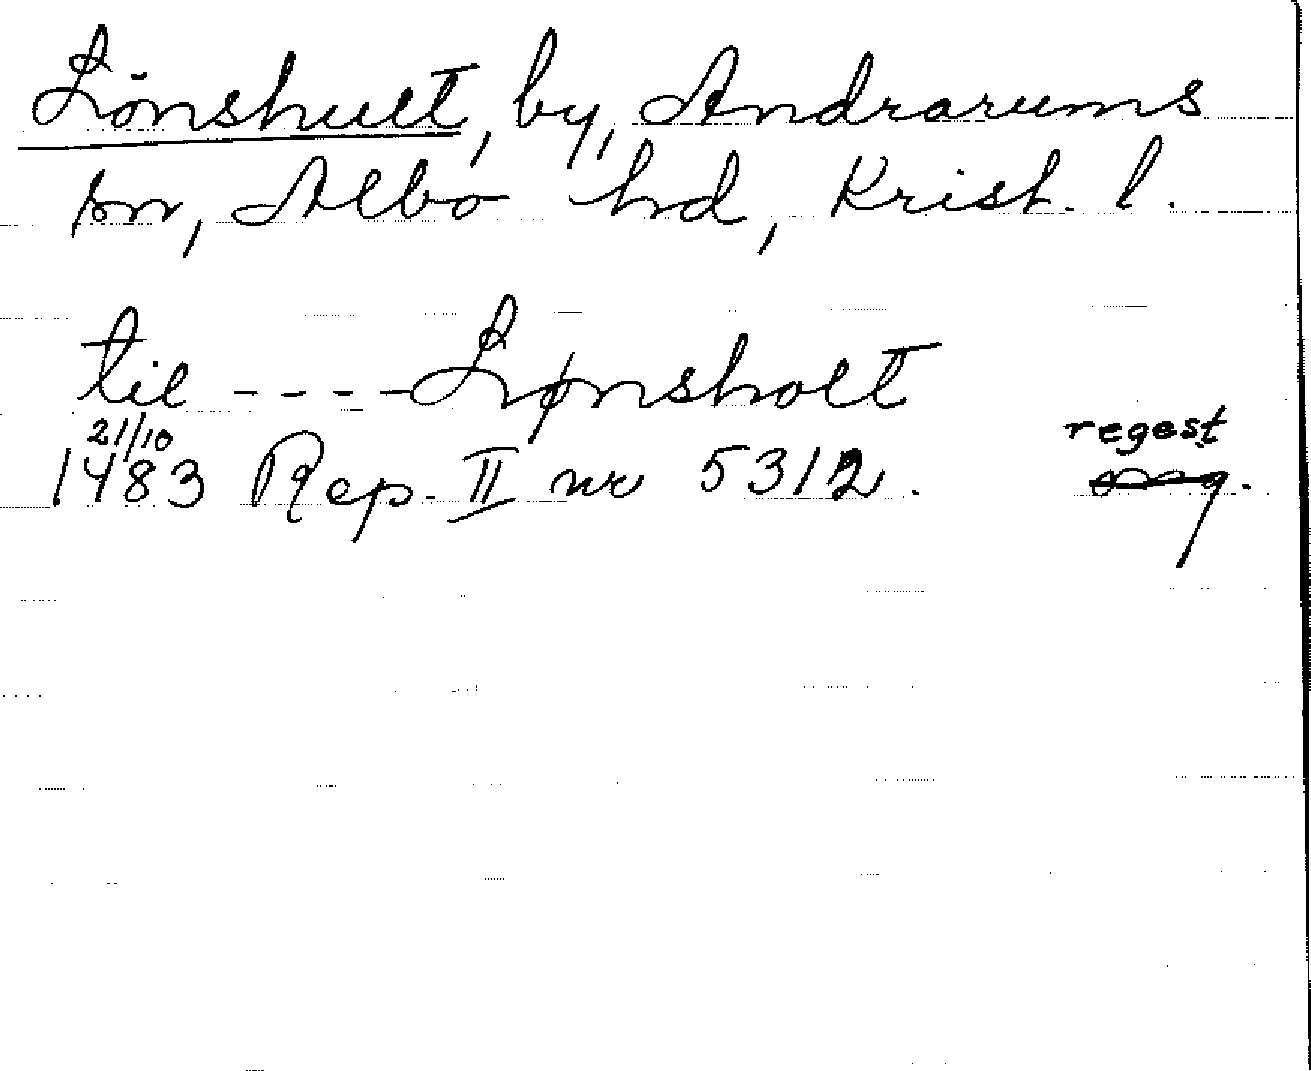 Lönshult, by, Andrarums
sn, Albo hd, Krist. l.
til ----Lønsholt
21/10
1483 Rep. II nr 5312. regest